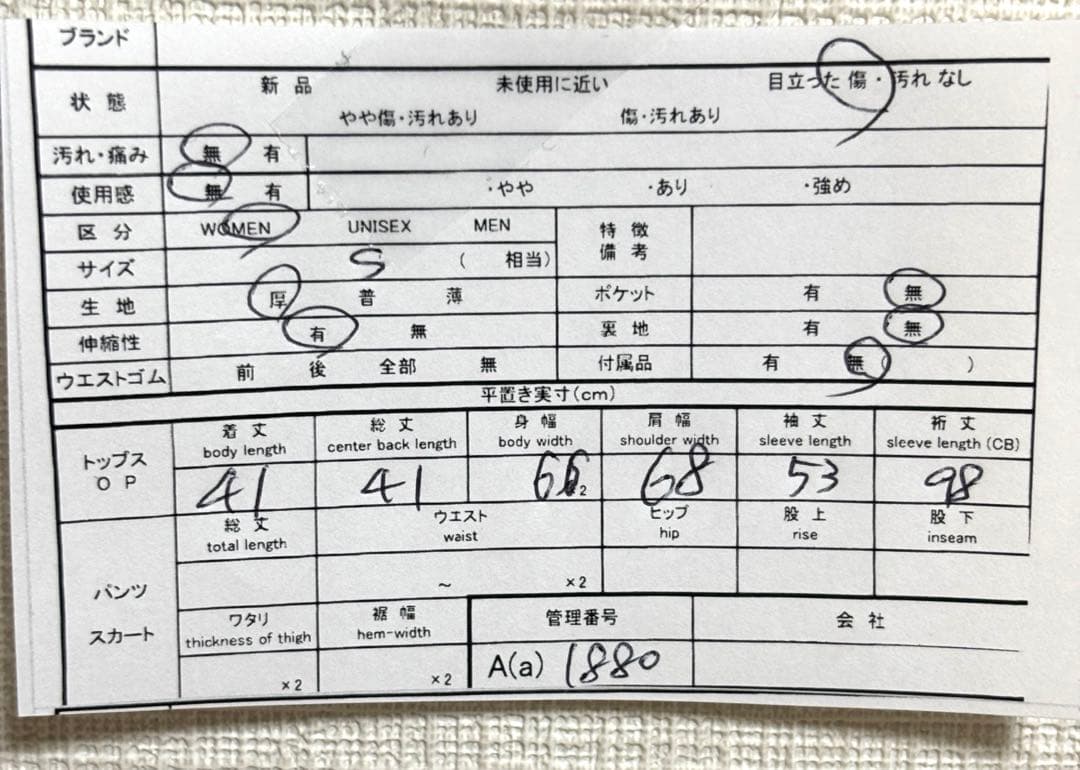 ブランド
状態 新品 未使用に近い 目立った傷・汚れなし
やや傷・汚れあり 傷・汚れあり
汚れ・痛み 無 有
使用感 無 有 ・やや ・あり ・強め
区分 WOMEN UNISEX MEN 特徴
備考
サイズ S ( 相当)
生地 厚 普 薄 ポケット 有 無
伸縮性 有 無 裏地 有 無
ウエストゴム 前 後 全部 無 付属品 有 無( )
平置き実寸(cm)
トップス
OP
着丈 総丈 身幅 肩幅 袖丈 裄丈
body length center back length body width shoulder width sleeve length sleeve length (CB)
41 41 66 ×2 68 53 98
パンツ
スカート
総丈 ウエスト ヒップ 股上 股下
total length waist hip rise inseam
~ ×2
ワタリ 裾幅 管理番号 会社
thickness of thigh hem-width
×2 ×2 A(a) 1880